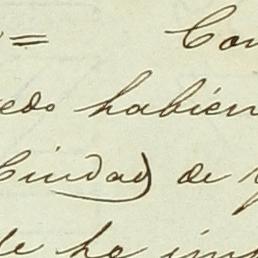 = Con
edo habien
Ciudad de
de ha im